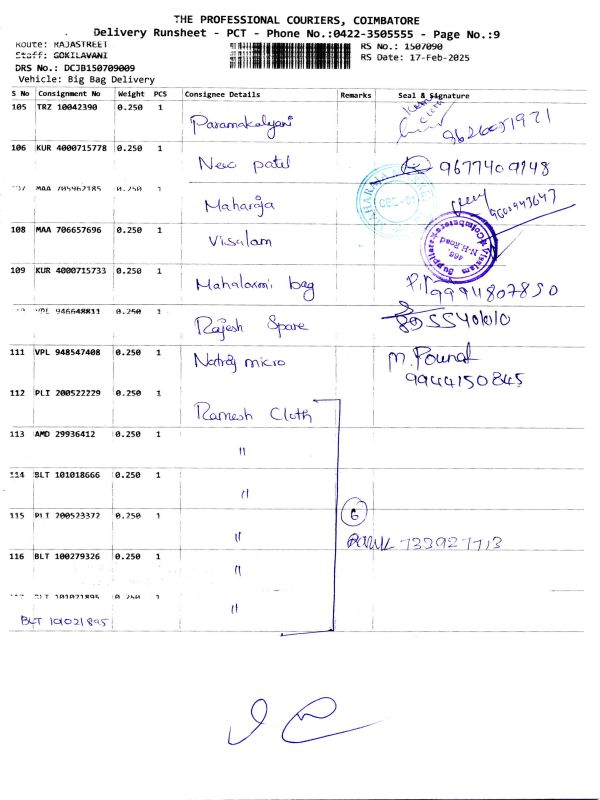 THE PROFESSIONAL COURIERS, COIMBATORE
Delivery Runsheet - PCT - Phone No.:0422-3505555 - Page No.:9
Route: RAJASTREET
RS No.: 1507090
Staff: GOKILAVANI
RS Date: 17-Feb-2025
DRS No.: DCJB150709009
Vehicle: Big Bag Delivery
S No Consignment No Weight PCS Consignee Details Remarks Seal & Signature
105 TRZ 10042390 0.250 1 Paramakalyani
9626051971
106 KUR 4000715778 0.250 1 New patel 9677409148
MAA 705962185 0.250 1 Maharaja 9600943643
108 MAA 706657696 0.250 1 Visalam
Visalam
N-H-Road
Coimbatore
109 KUR 4000715733 0.250 1 Mahalaxmi bag 9994807850
VPL 946648811 0.250 1 Rajesh Spare
111 VPL 948547408 0.250 1 Natraj micro
9944150845
112 PLI 200522229 0.250 1 Ramesh Cloth
113 AMD 29936412 0.250 1 "
114 BLT 101018666 0.250 1 "
115 PLI 200523372 0.250 1 " 6
733927713
116 BLT 100279326 0.250 1 "
BLT 101021895 0.250 1 "
BLT 101021895